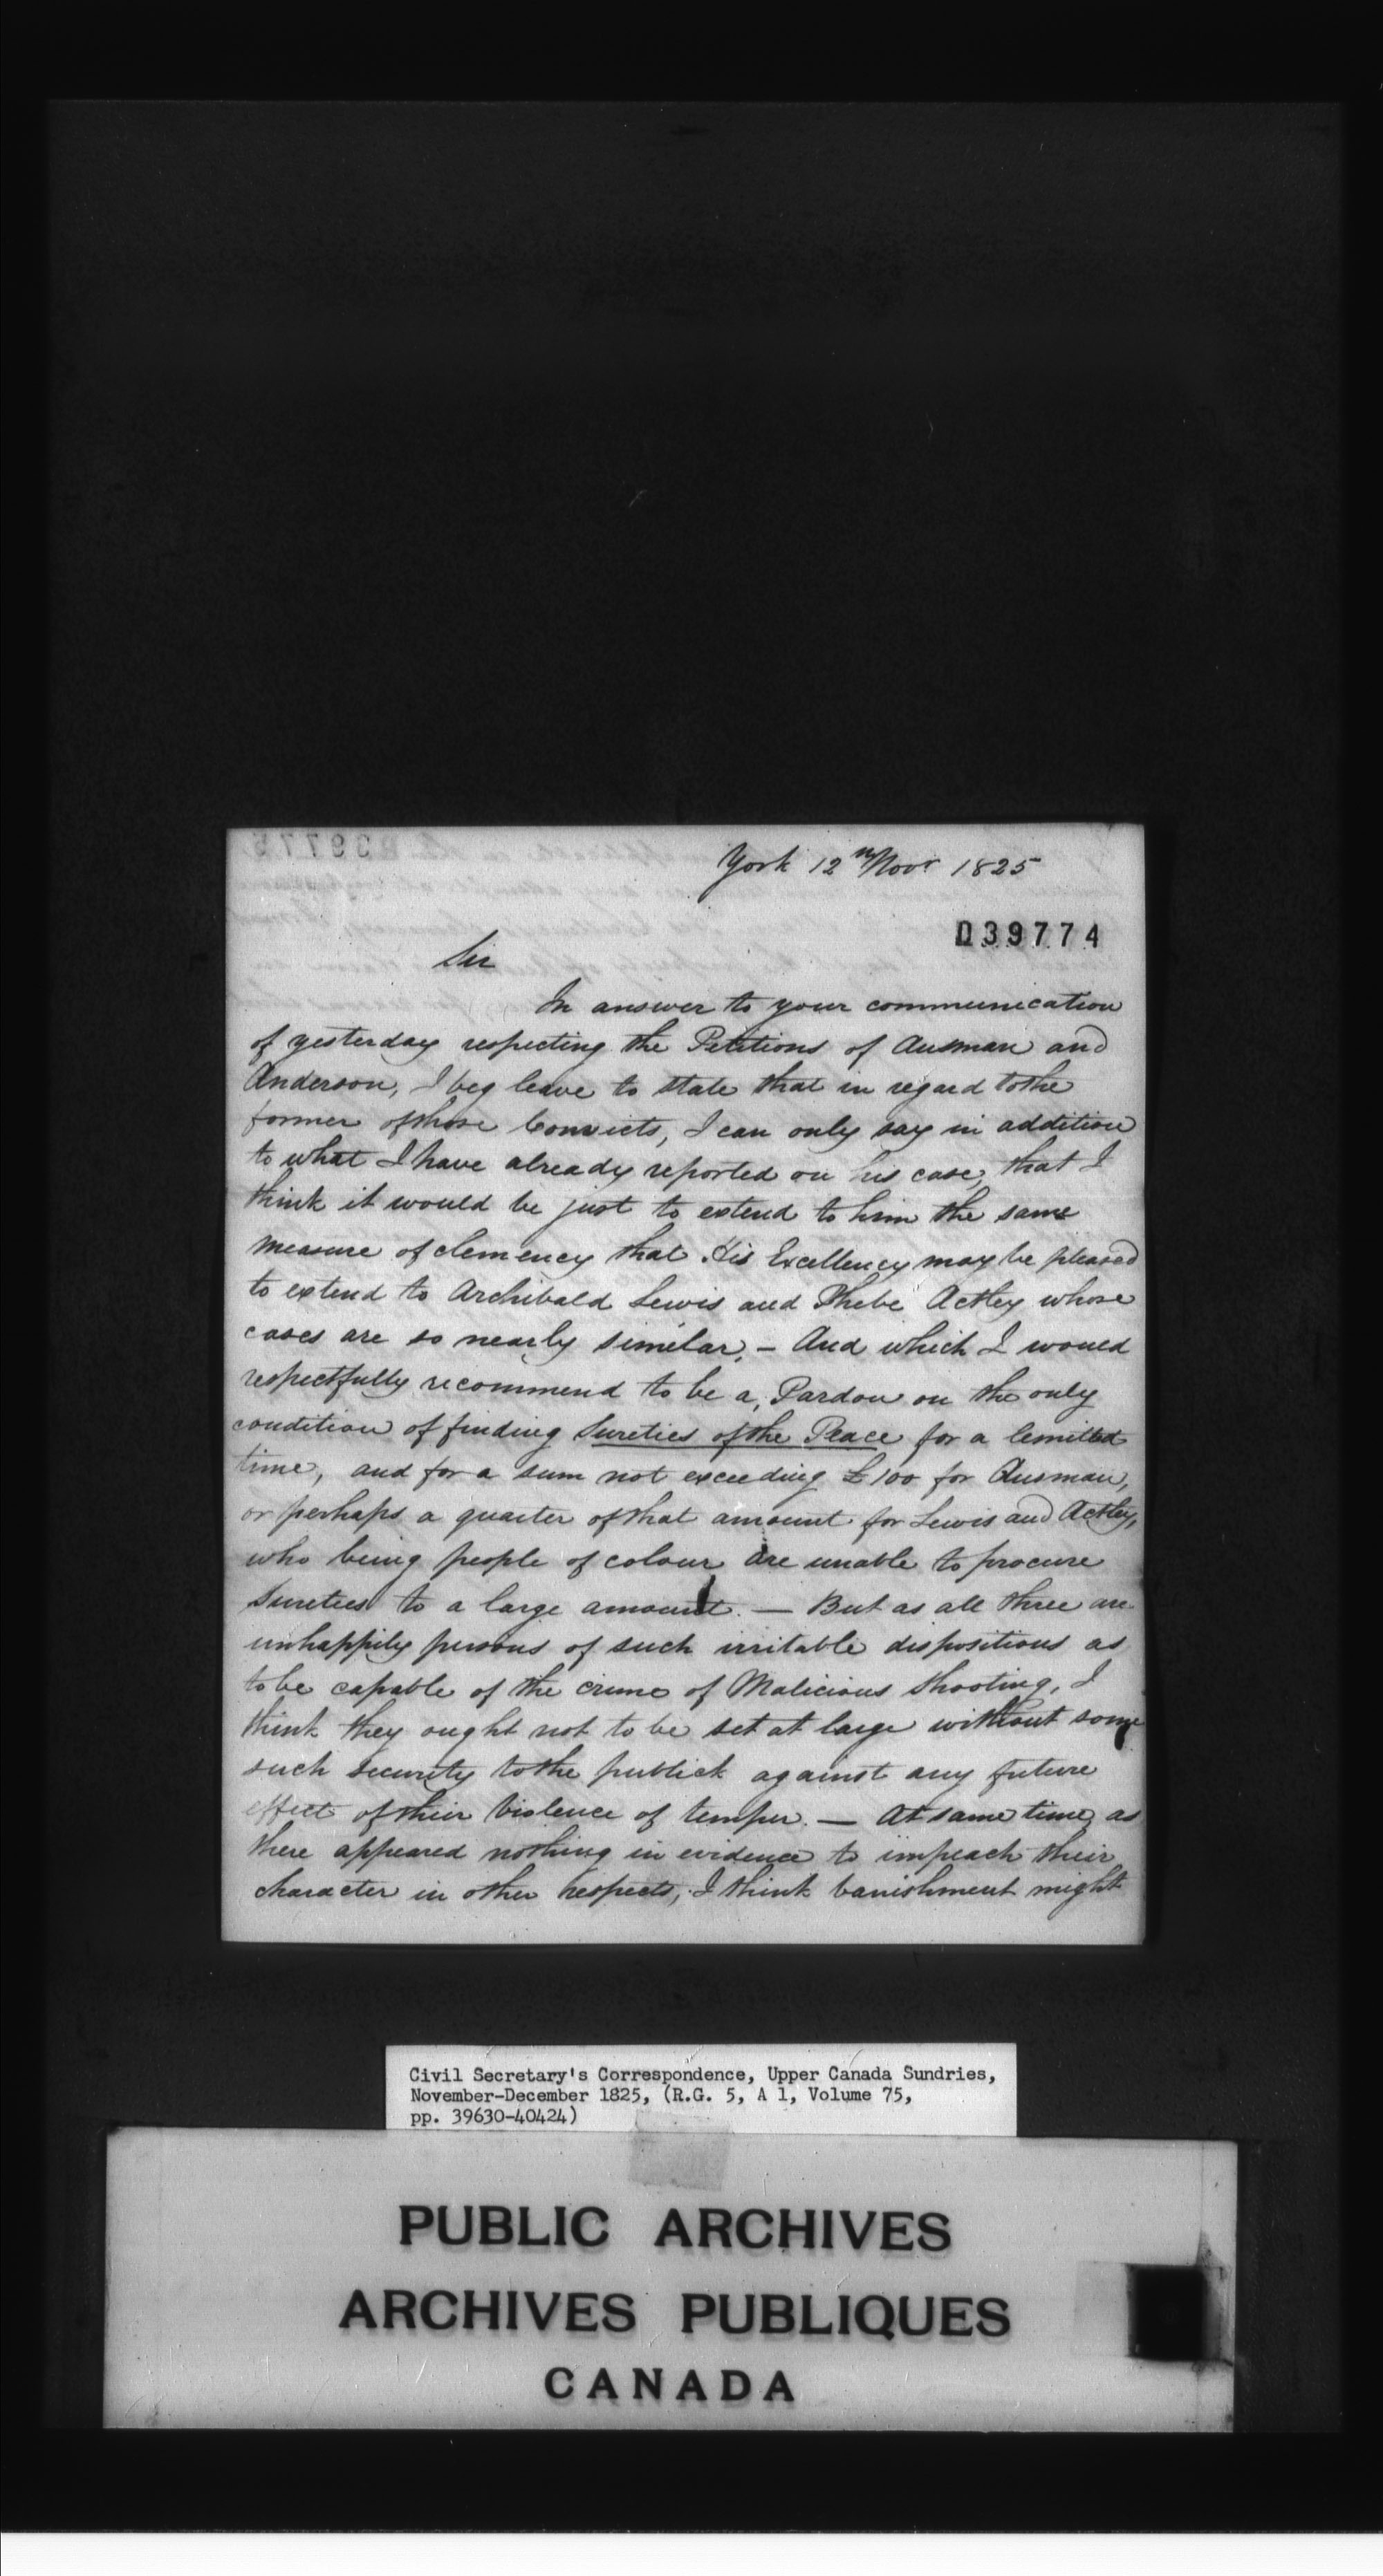 York 12th Novr 1825
D39774
Sir
In answer to your communication
of yesterday respecting the Petitions of Ausman and
Anderson, I beg leave to state that in regard to the
former of those Convicts, I can only say in addition
to what I have already reported on his case, that I
think it would be just to extend to him the same
measure of clemency that His Excellency may be pleased
to extend to Archibald Lewis and Phebe Actley whose
cases are so nearly similar, – And which I would
respectfully recommend to be a, Pardon on the only
condition of finding Sureties of the Peace for a limited
time, and for a sum not exceeding £100 for Ausman,
or perhaps a quarter of that amount for Lewis and Actley,
who being people of colour are unable to procure
Sureties to a large amount. — But as all three are
unhappily persons of such irritable dispositions as
to be capable of the crime of Malicious Shooting, I
think they ought not to be set at large without some
such security to the publick against any future
effect of their violence of temper. — At same time, as
there appeared nothing in evidence to impeach their
character in other respects, I think banishment might
Civil Secretary's Correspondence, Upper Canada Sundries,
November-December 1825, (R.G. 5, A 1, Volume 75,
pp. 39630-40424)
PUBLIC ARCHIVES
ARCHIVES PUBLIQUES
CANADA